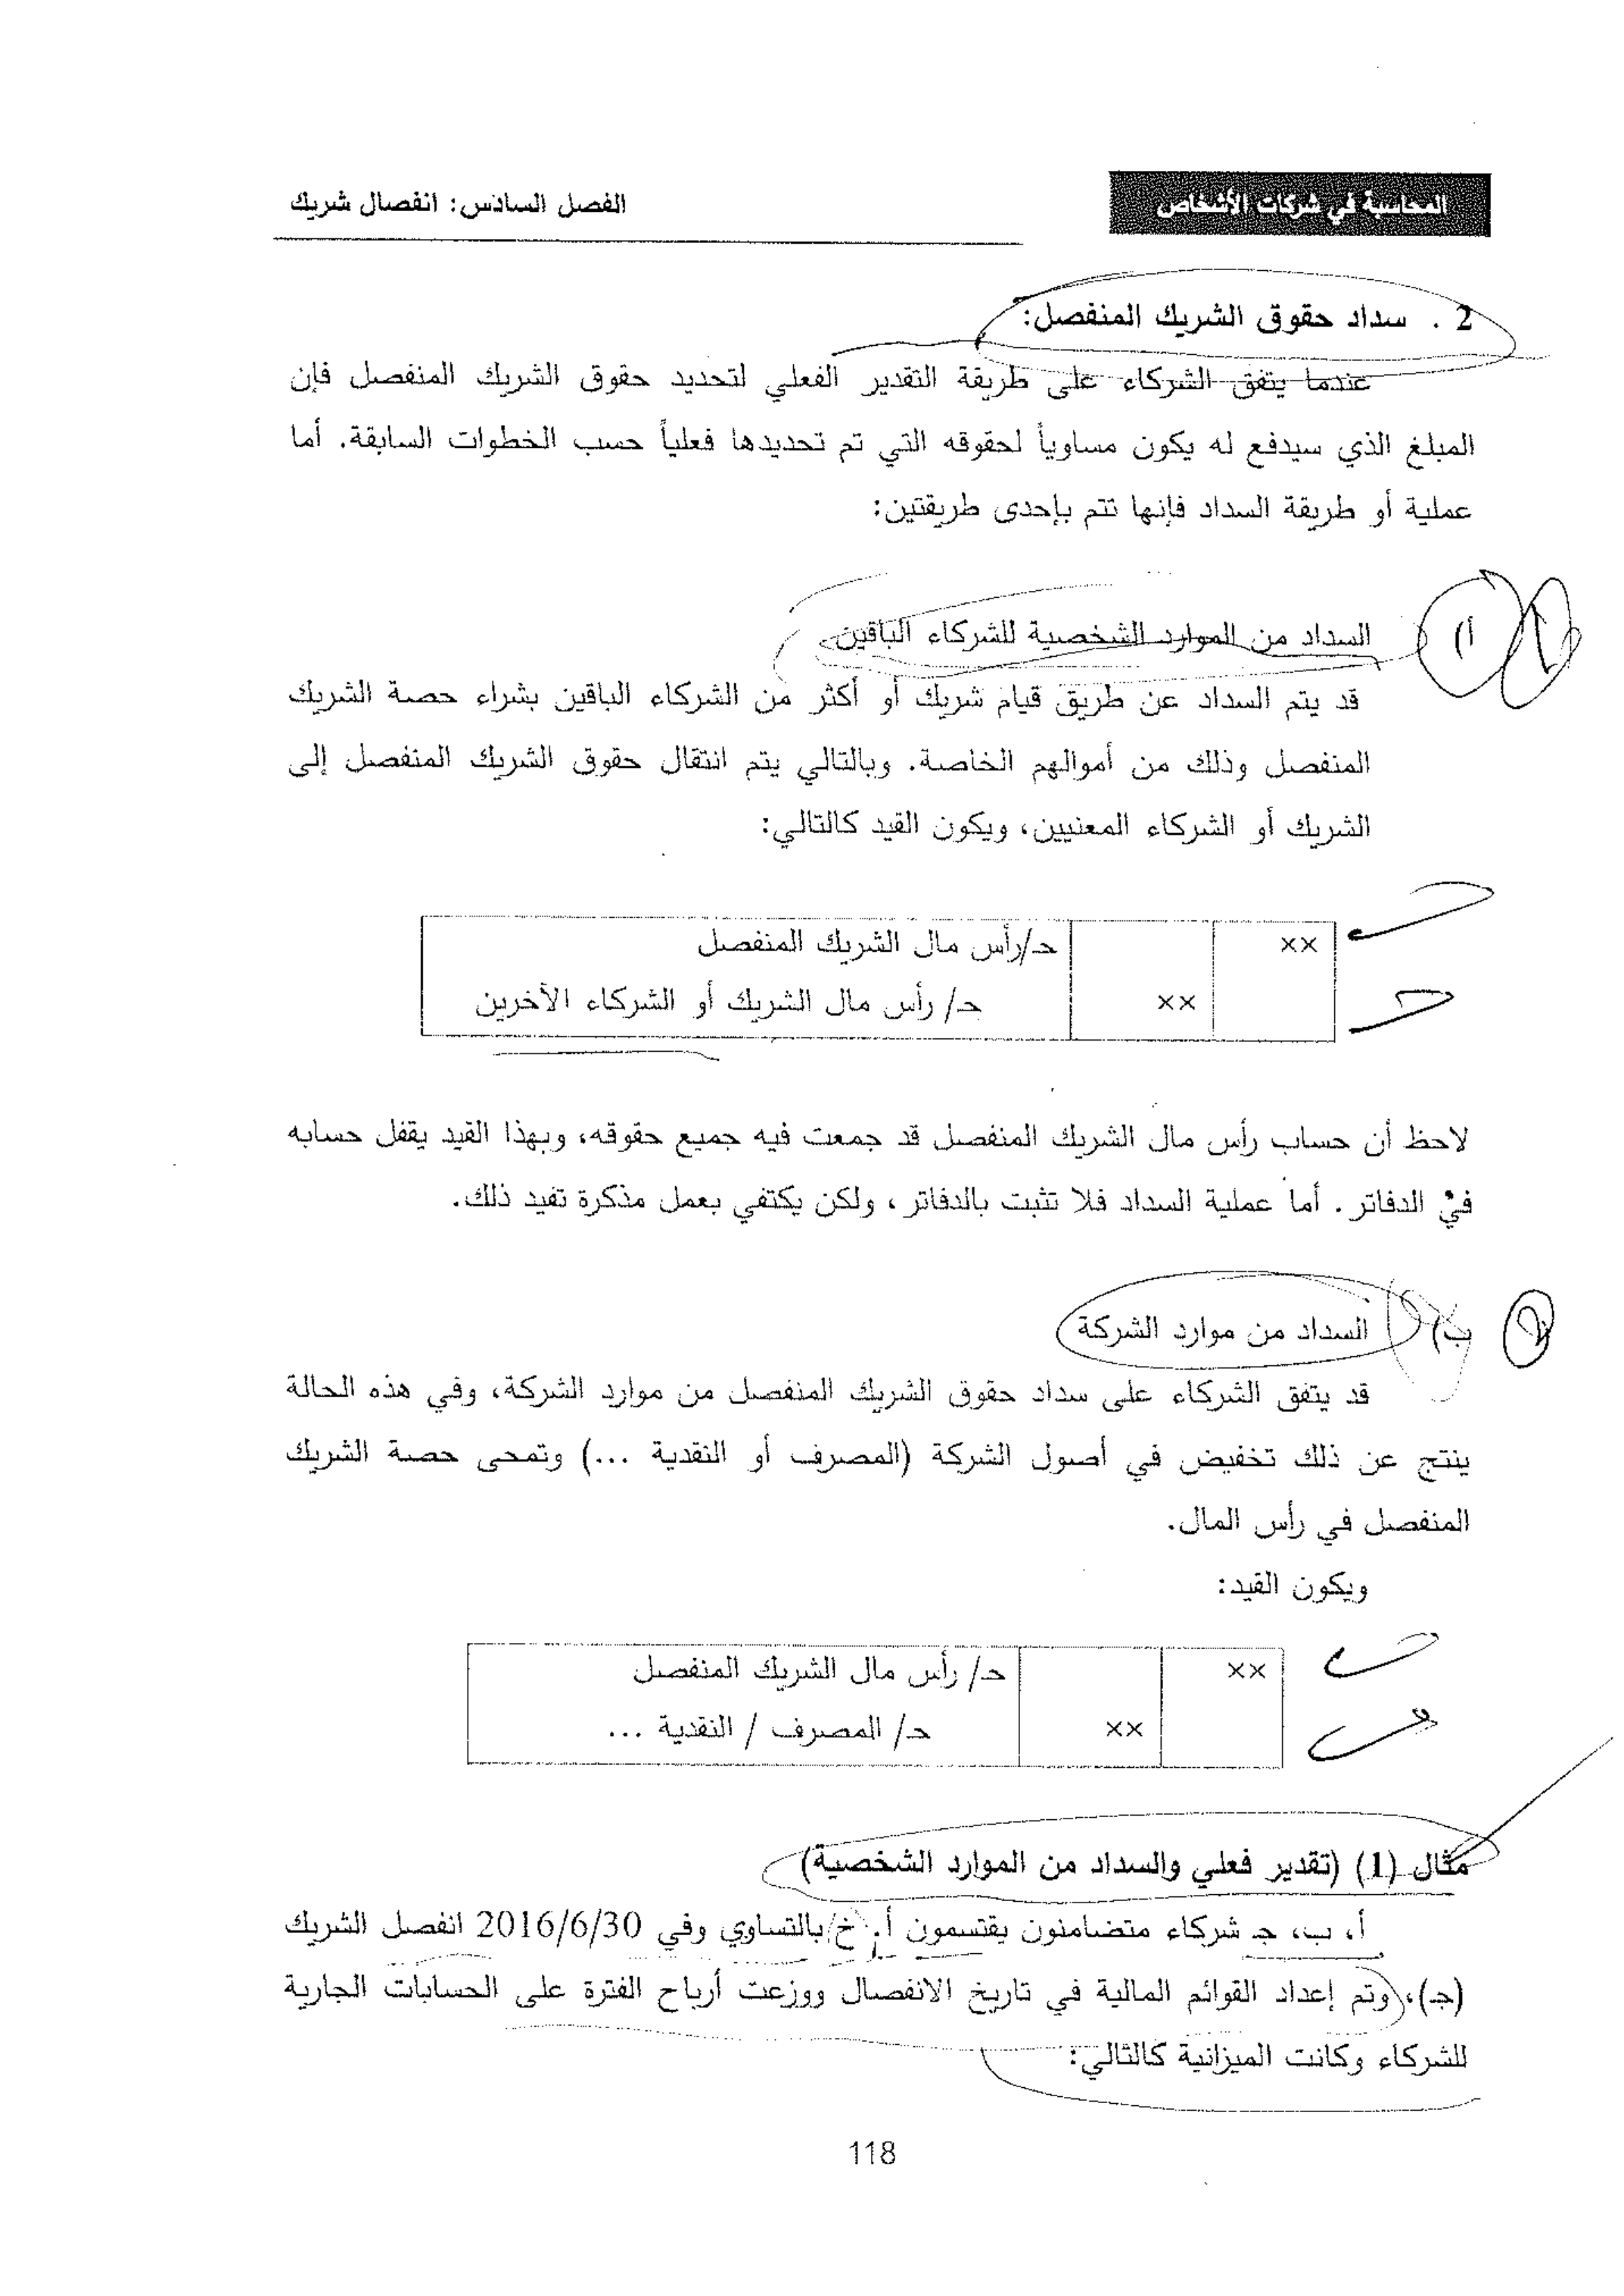 المحاسبة في شركات الأشخاص
الفصل السادس: انفصال شريك
2 . سداد حقوق الشريك المنفصل:
عندما يتفق الشركاء على طريقة التقدير الفعلي لتحديد حقوق الشريك المنفصل فإن
المبلغ الذي سيدفع له يكون مساوياً لحقوقه التي تم تحديدها فعلياً حسب الخطوات السابقة. أما
عملية أو طريقة السداد فإنها تتم بإحدى طريقتين:
أ) السداد من الموارد الشخصية للشركاء الباقين.
قد يتم السداد عن طريق قيام شريك أو أكثر من الشركاء الباقين بشراء حصة الشريك
المنفصل وذلك من أموالهم الخاصة. وبالتالي يتم انتقال حقوق الشريك المنفصل إلى
الشريك أو الشركاء المعنيين، ويكون القيد كالتالي:
×× حـ/رأس مال الشريك المنفصل
×× حـ/ رأس مال الشريك أو الشركاء الآخرين
لاحظ أن حساب رأس مال الشريك المنفصل قد جمعت فيه جميع حقوقه، وبهذا القيد يقفل حسابه
في الدفاتر . أما عملية السداد فلا تثبت بالدفاتر ، ولكن يكتفي بعمل مذكرة تفيد ذلك.
2 ب) السداد من موارد الشركة
قد يتفق الشركاء على سداد حقوق الشريك المنفصل من موارد الشركة، وفي هذه الحالة
ينتج عن ذلك تخفيض في أصول الشركة (المصرف أو النقدية ...) وتمحى حصة الشريك
المنفصل في رأس المال.
ويكون القيد:
×× حـ/ رأس مال الشريك المنفصل
×× حـ/ المصرف / النقدية ...
مثال (1) (تقدير فعلي والسداد من الموارد الشخصية)
أ، ب، جـ شركاء متضامنون يقتسمون أ. خ بالتساوي وفي 2016/6/30 انفصل الشريك
(جـ)، وتم إعداد القوائم المالية في تاريخ الانفصال ووزعت أرباح الفترة على الحسابات الجارية
للشركاء وكانت الميزانية كالتالي:
118